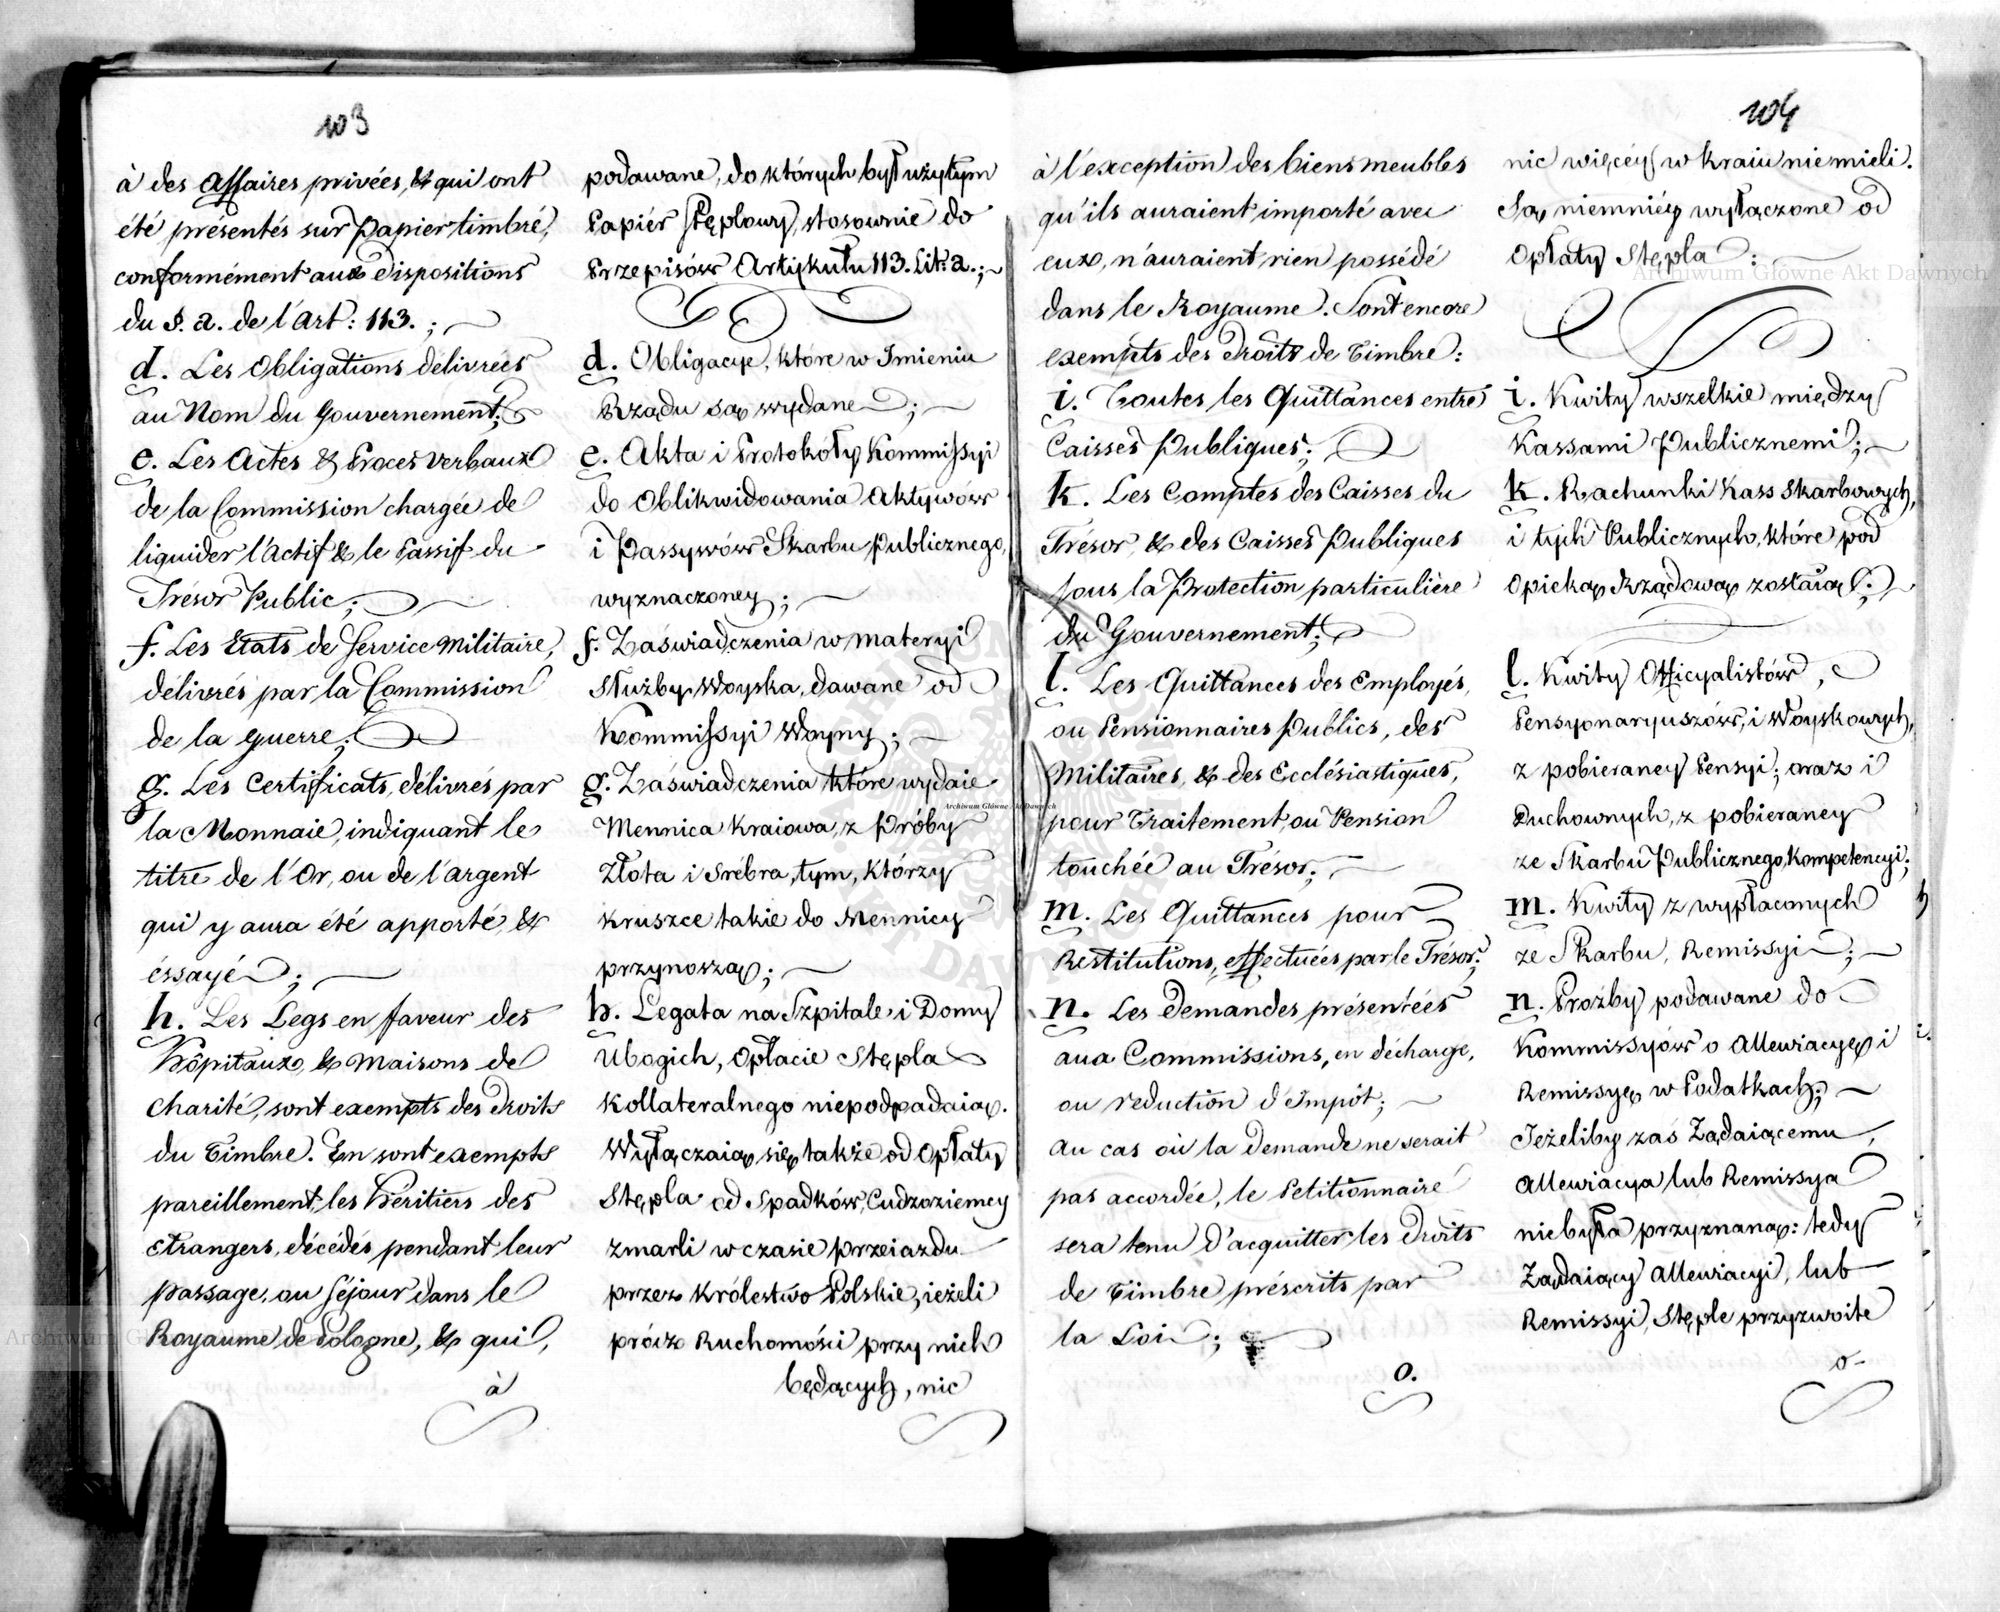 103
à des Affaires privées, & qui ont
été présentés sur Papier timbré,
conformément aux dispositions
du §. a. de l'Art: 113. ;
d. Les Obligations délivrées
au Nom du Gouvernement;
e. Les Actes & Proces verbaux
de la Commission chargée de
liquider l'Actif & le Passif du
Trésor Public;
f. Les Etats de Service Militaire,
délivrés par la Commission
de la guerre;
g. Les Certificats, délivrés par
la Monnaie, indiquant le
titre de l'Or, ou de l'argent
qui y aura été apporté, &
éssayé;
h. Les Legs en faveur des
Hôpitaux, & Maisons de
Charité, sont exempts des Droits
du Timbre. En sont exempts
pareillement, les Héritiers des
Etrangers, décédés pendant leur
passage, ou Séjour dans le
Royaume de Pologne, & qui,
à
podawane, do których był użytym
Papiér Stęplowy, stosownie do
Przepisów Artykułu 113. Lit: a.;
d. Obligacye, które w Jmieniu
Rządu są wydane;
e. Akta i Protokóły Kommissyi
do Oblikwidowania Aktywów
i Passywów Skarbu Publicznego,
wyznaczoney;
f. Zaświadczenia w materyi
Służby Woyska, dawane od
Kommissyi Woyny;
g. Zaświadczenia które wydaie
Mennica Kraiowa, z Próby
Złota i Srébra, tym, którzy
Kruszce takie do Mennicy
przynoszą;
h. Legata na Szpitale i Domy
Ubogich, Opłacie Stępla
Kollateralnego niepodpadaią.
Wyłączaią się także od Opłaty
Stępla od Spadków, Cudzoziemcy
zmarli w czasie przeiazdu
przez Królestwo Polskie, ieżeli
prócz Ruchomości przy nich
będących, nic
104
à l'exception des biens meubles
qu'ils auraient importé avec
eux, n'auraient rien possédé
dans le Royaume. Sont encore
exempts des Droits de Timbre:
i. Toutes les Quittances entre
Caisses Publiques;
k. Les Comptes des Caisses du
Trésor, & des Caisses Publiques
sous la Protection particulière
du Gouvernement;
l. Les Quittances des Employés,
ou Pensionnaires Publics, des
Militaires, & des Ecclésiastiques,
pour Traitement, ou Pension
touchée au Trésor;
m. Les Quittances pour
Restitutions, effectuées par le Trésor;
n. Les Demandes présentées
aux Commissions, en décharge,
ou reduction d'Impôt;
Au cas où la Demande ne serait
pas accordée, le Petitionnaire
sera tenu d'acquitter les Droits
de Timbre préscrits par
la Loi;
o.
nic więcéy w kraiu nie mieli.
Są niemniéy wyłączone od
Opłaty Stępla:
i. Kwity wszelkie między
Kassami Publicznemi;
k. Rachunki Kass Skarbowych,
i tych Publicznych, które pod
Opieką Rządową zostaią;
l. Kwity Officyalistów,
Pensyonaryuszów, i Woyskowych,
z pobieraney Pensyi; oraz i
Duchownych, z pobieraney
ze Skarbu Publicznego, Kompetencyi;
m. Kwity z wypłaconych
ze Skarbu, Remissyi;
n. Prożby podawane do
Kommissyów o Allewiacyę i
Remissyę w Podatkach;
Jeżeliby zaś Żądaiącemu,
Allewiacya lub Remissya
niebyła przyznaną: tedy
Żądaiący Allewiacyi, lub
Remissyi, Stęple przyzwoite
o-
Archiwum Główne Akt Dawnych
Archiwum Główne Akt Dawnych